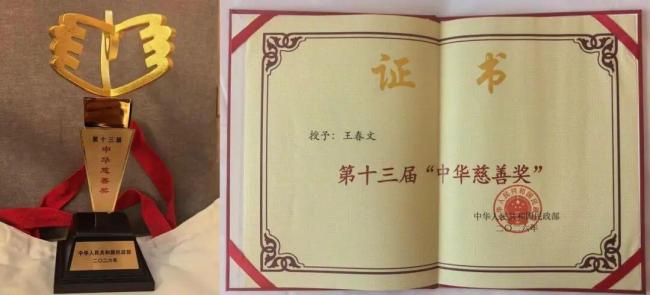 第十三届
中华慈善奖
中华人民共和国民政部
二〇二六年
证书
授予：王春文
第十三届“中华慈善奖”
中华人民共和国民政部
二〇二六年
中华人民共和国民政部